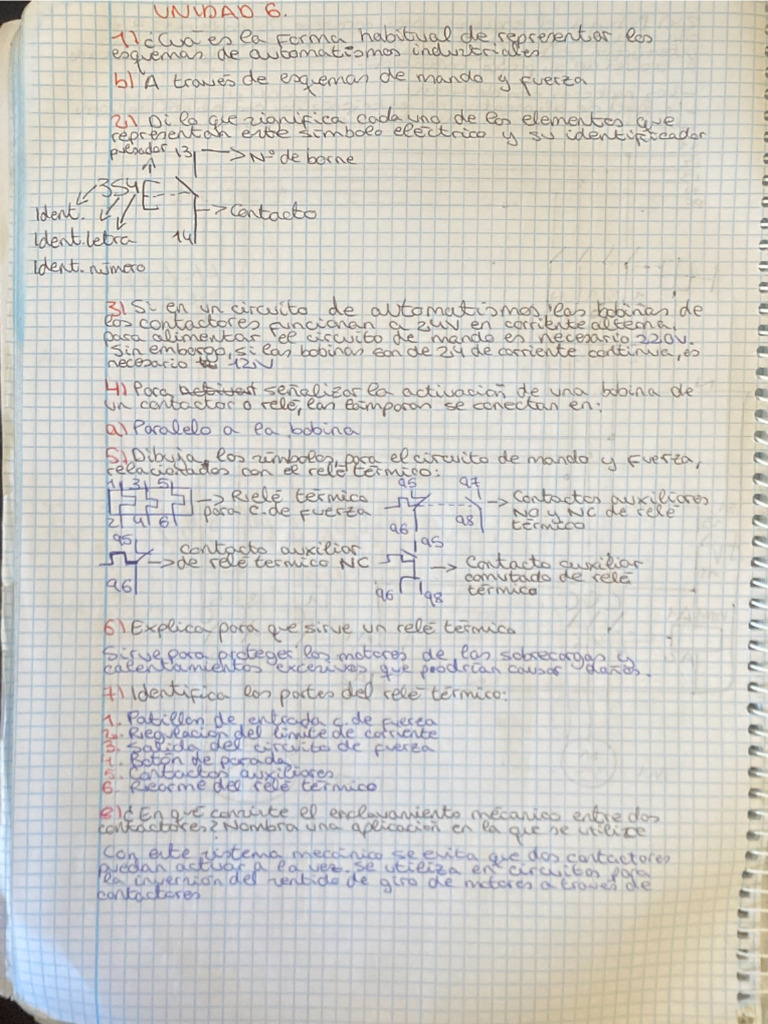 UNIDAD 6.
1) ¿Cuá es la forma habitual de representar los
esquemas de automatismos industriales
b) A través de esquemas de mando y fuerza
2) Di lo que significa cada uno de los elementos que
representan este símbolo eléctrico y su identificador
pulsador 13 → Nº de borne
3S4
Ident. → Contacto
Ident. letra 14
Ident. número
3) Si en un circuito de automatismos, las bobinas de
los contactores funcionan a 24V en corriente alterna,
para alimentar el circuito de mando es necesario 220V.
Sin embargo, si las bobinas son de 24 de corriente continua, es
necesario 12V
4) Para señalizar la activación de una bobina de
un contactor o relé, las lámparas se conectan en:
a) Paralelo a la bobina
5) Dibuja, los símbolos, para el circuito de mando y fuerza,
relacionados con el relé térmico:
1 3 5 95 97
→ Relé térmico → Contactos auxiliares
para c. de fuerza NO y NC de relé
2 4 6 96 98 térmico
95 contacto auxiliar 95
→ de relé termico NC → Contacto auxiliar
conmutado de relé
96 96 98 térmico
6) Explica para que sirve un relé térmico
Sirve para proteger los motores de las sobrecargas y
calentamientos excesivos que podrían causar daños.
7) Identifica las partes del relé térmico:
1. Patillas de entrada c. de fuerza
2. Regulación del límite de corriente
3. Salida del circuito de fuerza
4. Botón de parada
5. Contactos auxiliares
6. Rearme del relé térmico
8) ¿En qué consiste el enclavamiento mecánico entre dos
contactores? Nombra una aplicación en la que se utilice
Con este sistema mecánico se evita que dos contactores
puedan actuar a la vez. se utiliza en circuitos para
la inversión del sentido de giro de motores a través de
contactores